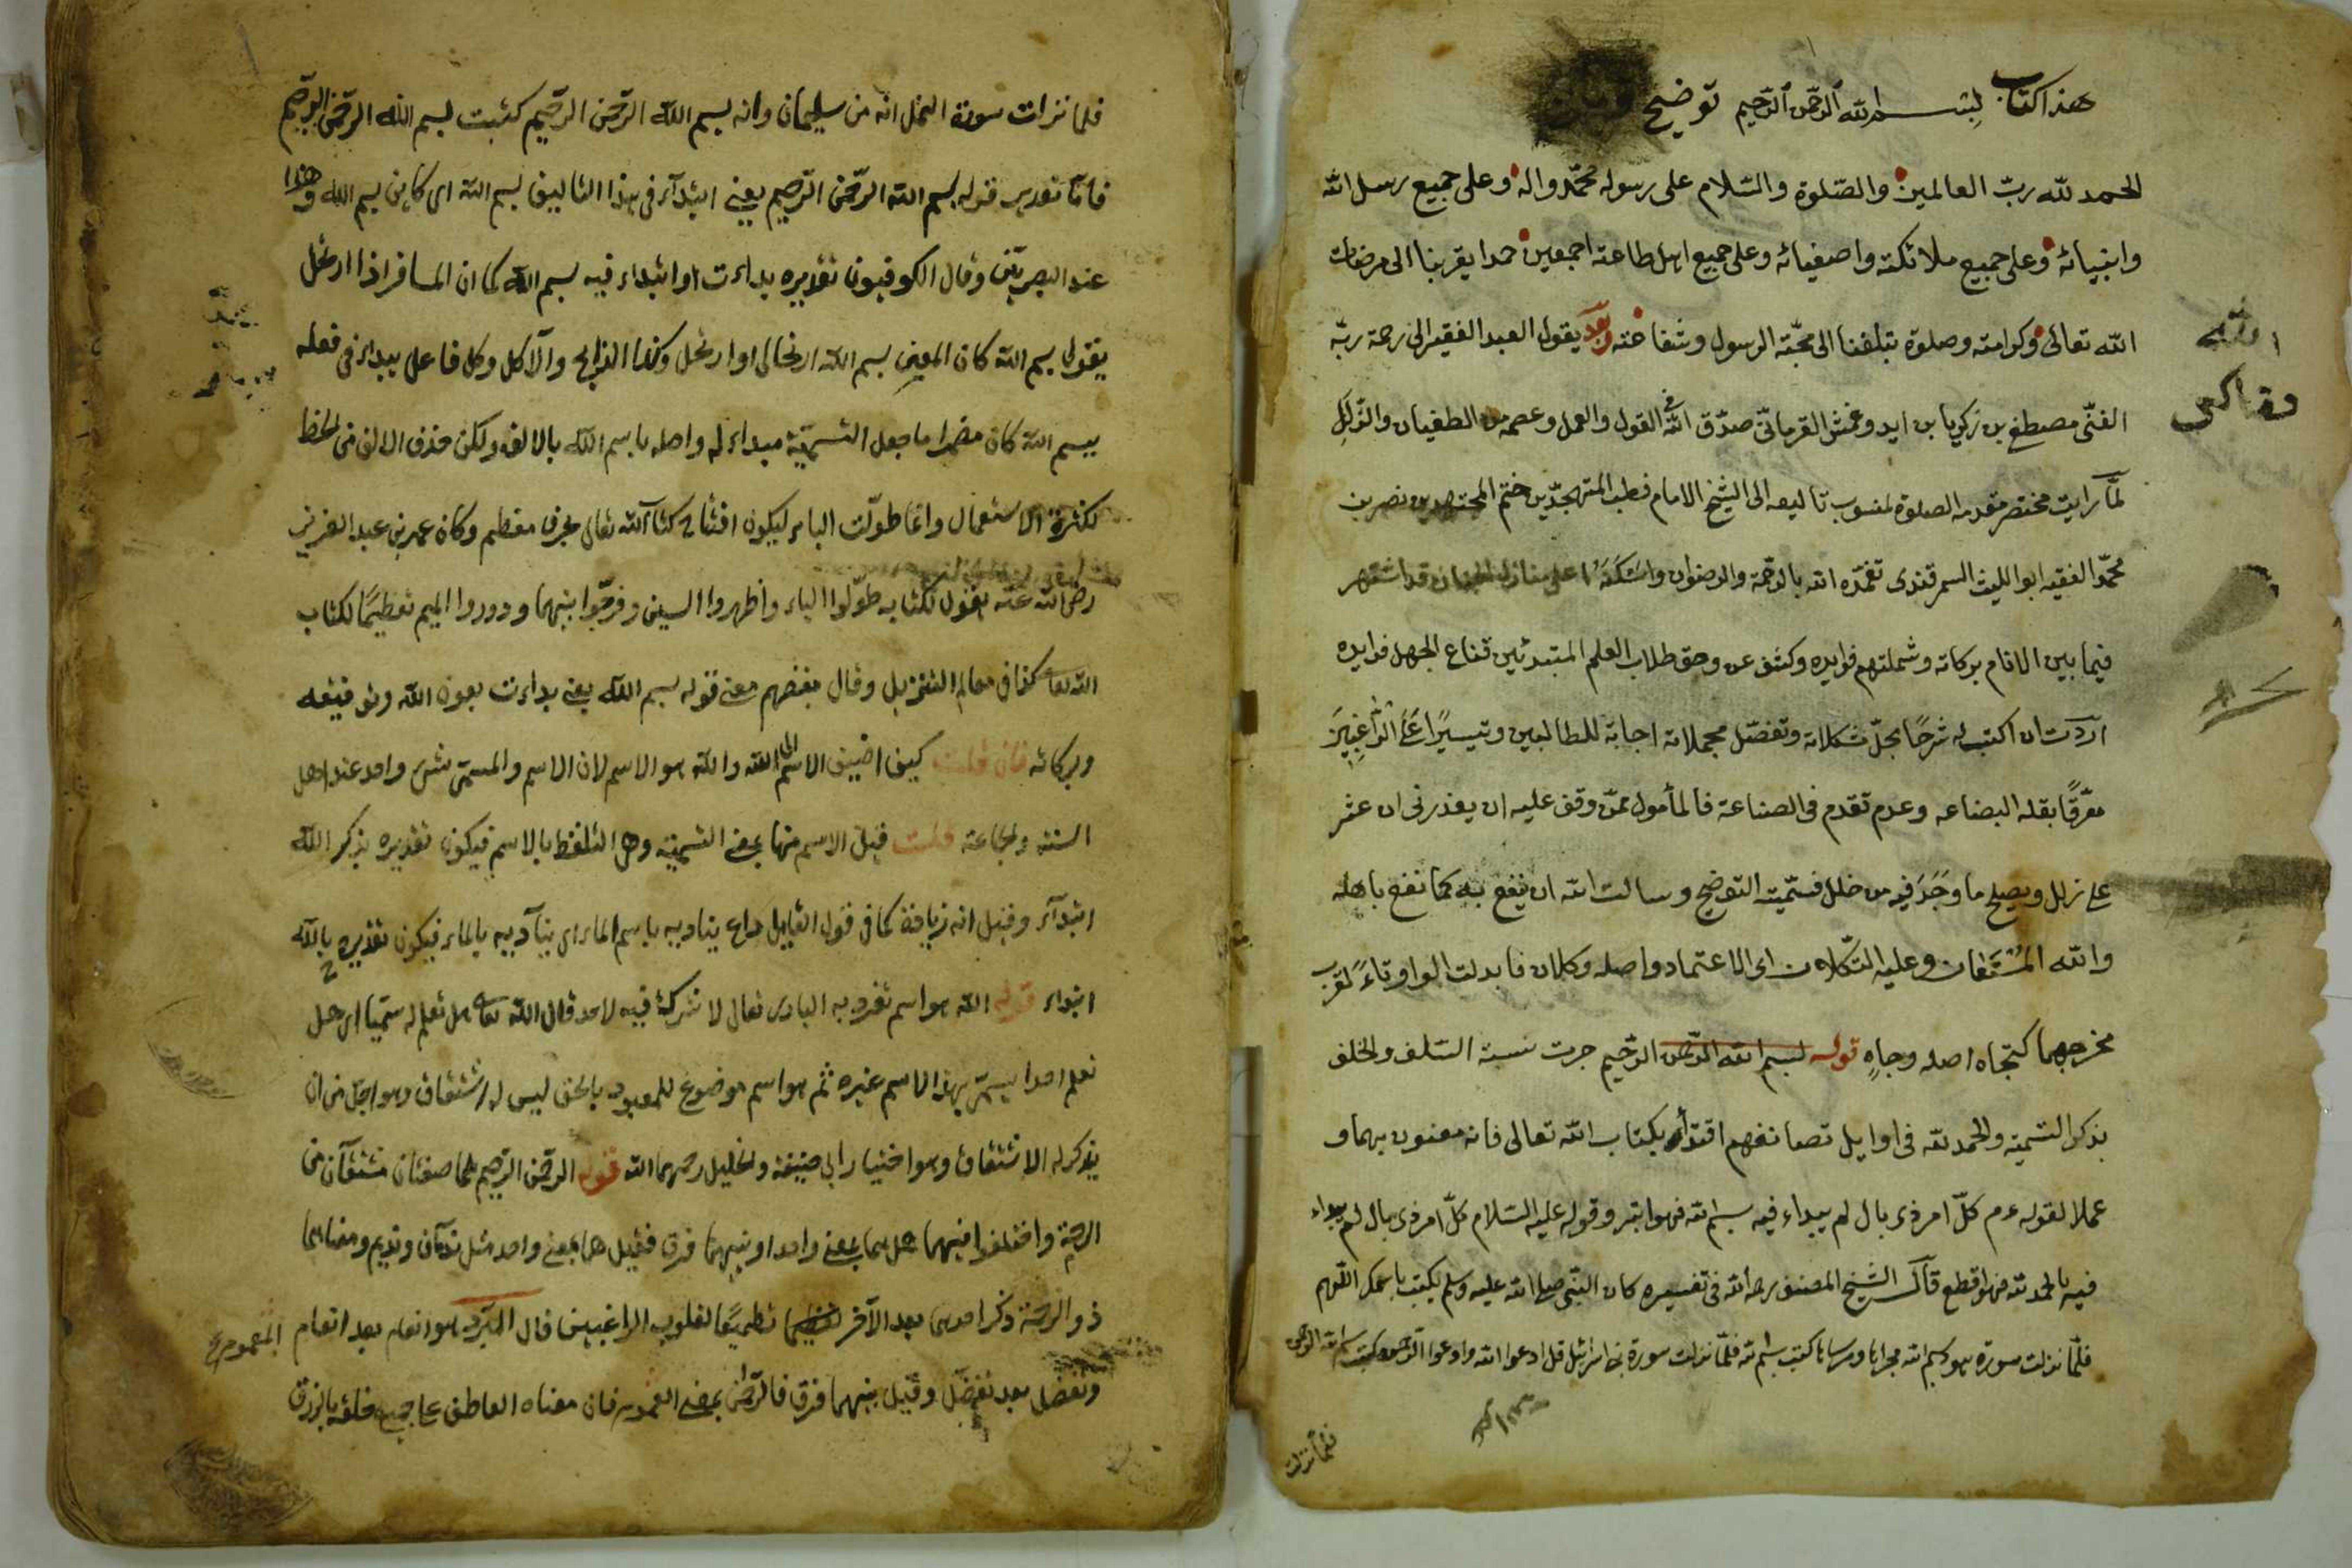 هذا كتاب بسم الله الرحمن الرحيم توضيح
الحمد لله ربّ العالمين والصّلوة والسّلام على رسوله محمّد واله وعلى جميع رسل الله
وانبيائه وعلى جميع ملائكته واصفيائه وعلى جميع اهل طاعته اجمعين حمدا يقربنا الى مرضات
الله تعالى وكرامته وصلوة تبلغنا الى محبّته الرسول وشفاعته وبعد يقول العبد الفقير الى رحمة ربّه
الغنّى مصطفى بن زكريا بن ايدوغمش القرمانىّ صدّق الله فى القول والعمل وعصمه من الطغيان والزلل
لمّا رايت مختصر مقدمه الصلوة لمنسوب تاليفه الى الشيخ الامام قطب المتهجدّين ختم المجتهدين نصر بن
محمّد الفقيه ابو الليث السمرقندى تغمّده الله بالرحمة والرضوان واسكنه اعلى منازل الجنان قد اشتهر
فيما بين الانام بركاته وشملتهم فوايده وكشف عن وجوه طلاب العلم المبتدئين قناع الجهل فوايده
اردت ان اكتب له شرحًا يحلّ مشكلاته وتفصّل مجملاته اجابة للطالبين وتيسيرًا على الراغبين
معترفًا بقله البضاعه وعدم تقدم فى الصناعة فالمأمول ممّن وقف عليه ان يعذرنى ان عثر
على زلل ويصلح ما وجد فيه من خلل فسمّيته التوضيح وسالت الله ان ينفع به كما نفع باصله
والله المستعان وعليه التكلان اى الاعتماد واصله وكلان فابدلت الواو تاءً لقرب
مخرجهما كتجاه اصله وجاه قوله بسم الله الرحمن الرحيم جرت سنة السلف والخلف
بذكر التسمية والحمد لله فى اوايل تصانفهم اقتداء بكتاب الله تعالى فانه معنون بهما و
عملا لقوله عم كلّ امر ذى بال لم يبداء فيه بسم الله فهو ابتر وقوله عليه السّلام كلّ امر ذى بال لم يبداء
فيه بالحمد لله فهو اقطع قال الشيخ المصنف رحمه الله فى تفسيره كان النبىّ صلى الله عليه وسلم يكتب باسمك اللهم
فلمّا نزلت سورة هود بسم الله مجراها ومرساها كتب بسم الله فلمّا نزلت سورة بنى اسرائيل قل ادعوا الله وادعوا الرحمن كتب بسم الله الرحمن
فلمّا نزلت
فلما نزلت سورة النمل انه من سليمان وانه بسم الله الرحمن الرحيم كتبت بسم الله الرحمن الرحيم
فامّا تقدير قوله بسم الله الرحمن الرحيم يعنى ابتدآء فى هذا التاليف بسم الله اى كاين بسم الله وهذا
عند البصريين وقال الكوفيون تقديره بداءت او ابتداء فيه بسم الله كما ان المسافر اذا ارتحل
يقول بسم الله كان المعنى بسم الله ارتحالى او ارتحل وكذا الذابح والآكل وكل فاعل يبداء فى فعله
ببسم الله كان مضمرا ما جعل التسميّة مبداء له واصله باسم الله بالالف ولكن حذف الالف من الخط
لكثرة الاستعمال وانما طولّت الباء ليكون افتتاح كتاب الله تعالى بحرف معظم وكان عمر بن عبد العزيز
رضى الله عنه يقول لكتابه طوّلوا الباء واظهروا السين وفرجّوا بينهما ودوروا الميم تعظيمًا لكتاب
الله تعا كذا فى معالم التنزيل وقال بعضهم معنى قوله بسم الله يعنى بداءت بعون الله وتوفيقه
وبركاته فان قلت كيف اضيف الاسم الى الله والله هو الاسم لان الاسم والمسمّى شىء واحد عند اهل
السنة والجماعة قلت قيل الاسم منها بمعنى التسمية وهى التلفظ بالاسم فيكون تقديره بذكر الله
ابتدآء وقيل انه زيادة كما فى قول القايل داع يناديه باسم الماء اى يناديه بالماء فيكون تقديره بالله
ابتداء قوله الله هو اسم تفرد به البارى تعالى لا شركة فيه لاحد قال الله تعا هل تعلم له سميّا اى هل
تعلم احدا يسمّى بهذا الاسم غيره ثم هو اسم موضوع للمعبود بالحق ليس له اشتقاق وهو اجلّ من ان
يذكر له الاشتقاق وهو اختيار ابى حنيفة والخليل رحمهما الله قوله الرحمن الرحيم هما صفتان مشتقان من
الرحمة واختلفوا فيهما هل هما بمعنى واحد او بينهما فرق فقيل هما بمعنى واحد مثل ندمان ونديم ومعناهما
ذو الرحمة ذكر احدهما بعد الآخر تطميعًا لقلوب الراغبين قال المبرّد هو انعام بعد انعام
وتفضل بعد تفضّل وقيل بينهما فرق فالرحمن بمعنى العموم فان معناه العاطف على جميع خلقه بالرزق